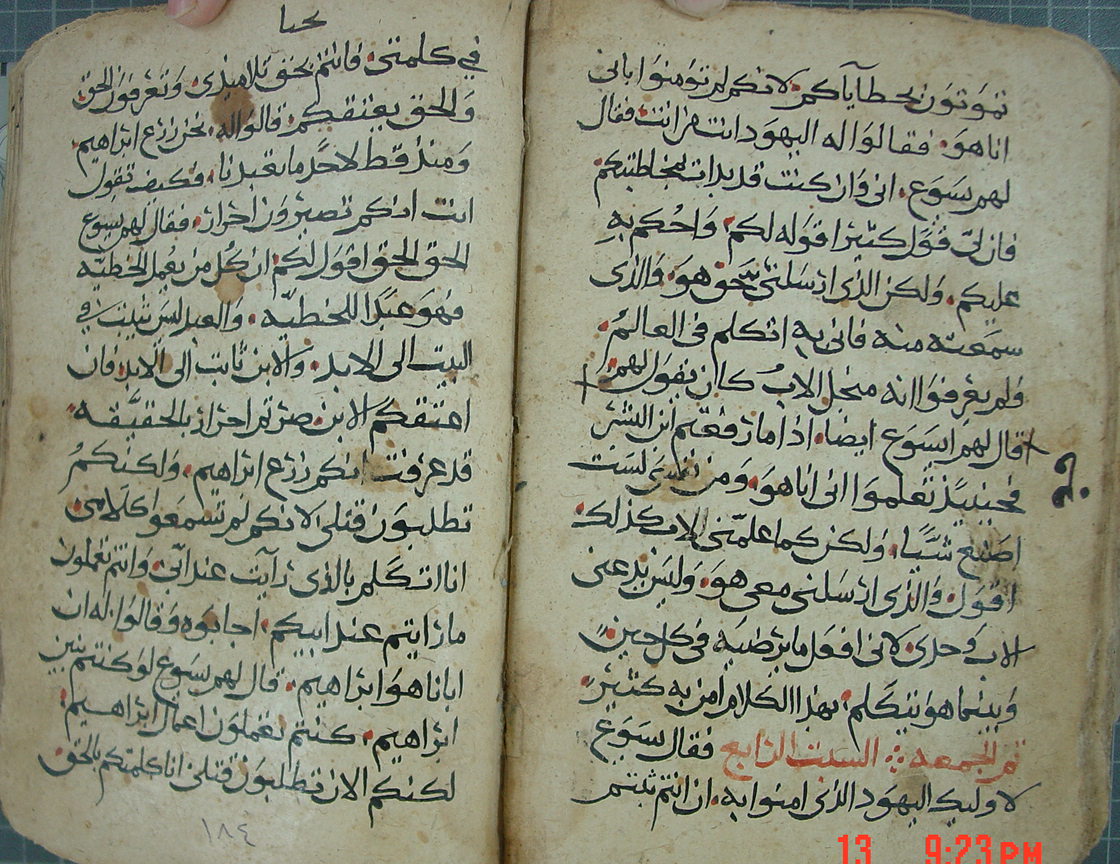 تموتون بخطاياكم لانكم لم تومنوا باني
انا هو. فقالوا له اليهود انت من انت فقال
لهم يسوع. اني وان كنت قد بدات بمخاطبتكم
فان لي قول كثيرا اقوله لكم. واحكم به
عليكم. ولكن الذي ارسلني محق هو. والذي
سمعته منه فاني به اتكلم في العالم.
ولم يعرفوا انه منجل الاب كان يقول لهم.
قال لهم ايسوع ايضا. اذا ما رفعتم ابن البشر
فحينيذ تعلموا اني انا هو. ومن نفسي لست
اصنع شيا. ولكن كما علمني الاب كذلك
اقول. والذي ارسلني معي هو. وليس يدعني
الاب وحدي. لاني افعل ما يرضيه في كل حين.
وبينما هو يتكلم. بهذا الكلام امن به كثير.
تم الجمعه ༶ السبت الرابع فقال يسوع
لاوليك اليهود الذي امنوا به. ان انتم ثبتم
يحيا
في كلمتي. فانتم بحق تلاميذي. وتعرفون الحق
والحق يعتقكم. قالوا له. نحن زرع ابراهيم
ومنذ قط لاحد ما تعبدنا. فكيف تقول
انت انكم تصيرون احرار. فقال لهم يسوع
الحق الحق اقول لكم. ان كل من يعمل الخطيه
فهو عبدا للخطيه. والعبد ليس يثبت في
البيت الى الابد. والابن ثابت الى الابد. فان
اعتقكم الابن. صرتم احرار بالحقيقه.
قد عرفت انكم زرع ابراهيم. ولكنكم
تطلبون قتلي. لانكم لم تسمعوا كلامي.
انا اتكلم بالذي رايت عند ابي. وانتم تعملون
ما رايتم عند ابيكم. اجابوه وقالوا. له ان
ابانا هو ابراهيم. قال لهم يسوع لو كنتم بني
ابراهيم. كنتم تعملون اعمال ابراهيم.
لكنكم الان تطلبون قتلي. انا كلمتكم بالحق
١٨٤
13 9:23 PM